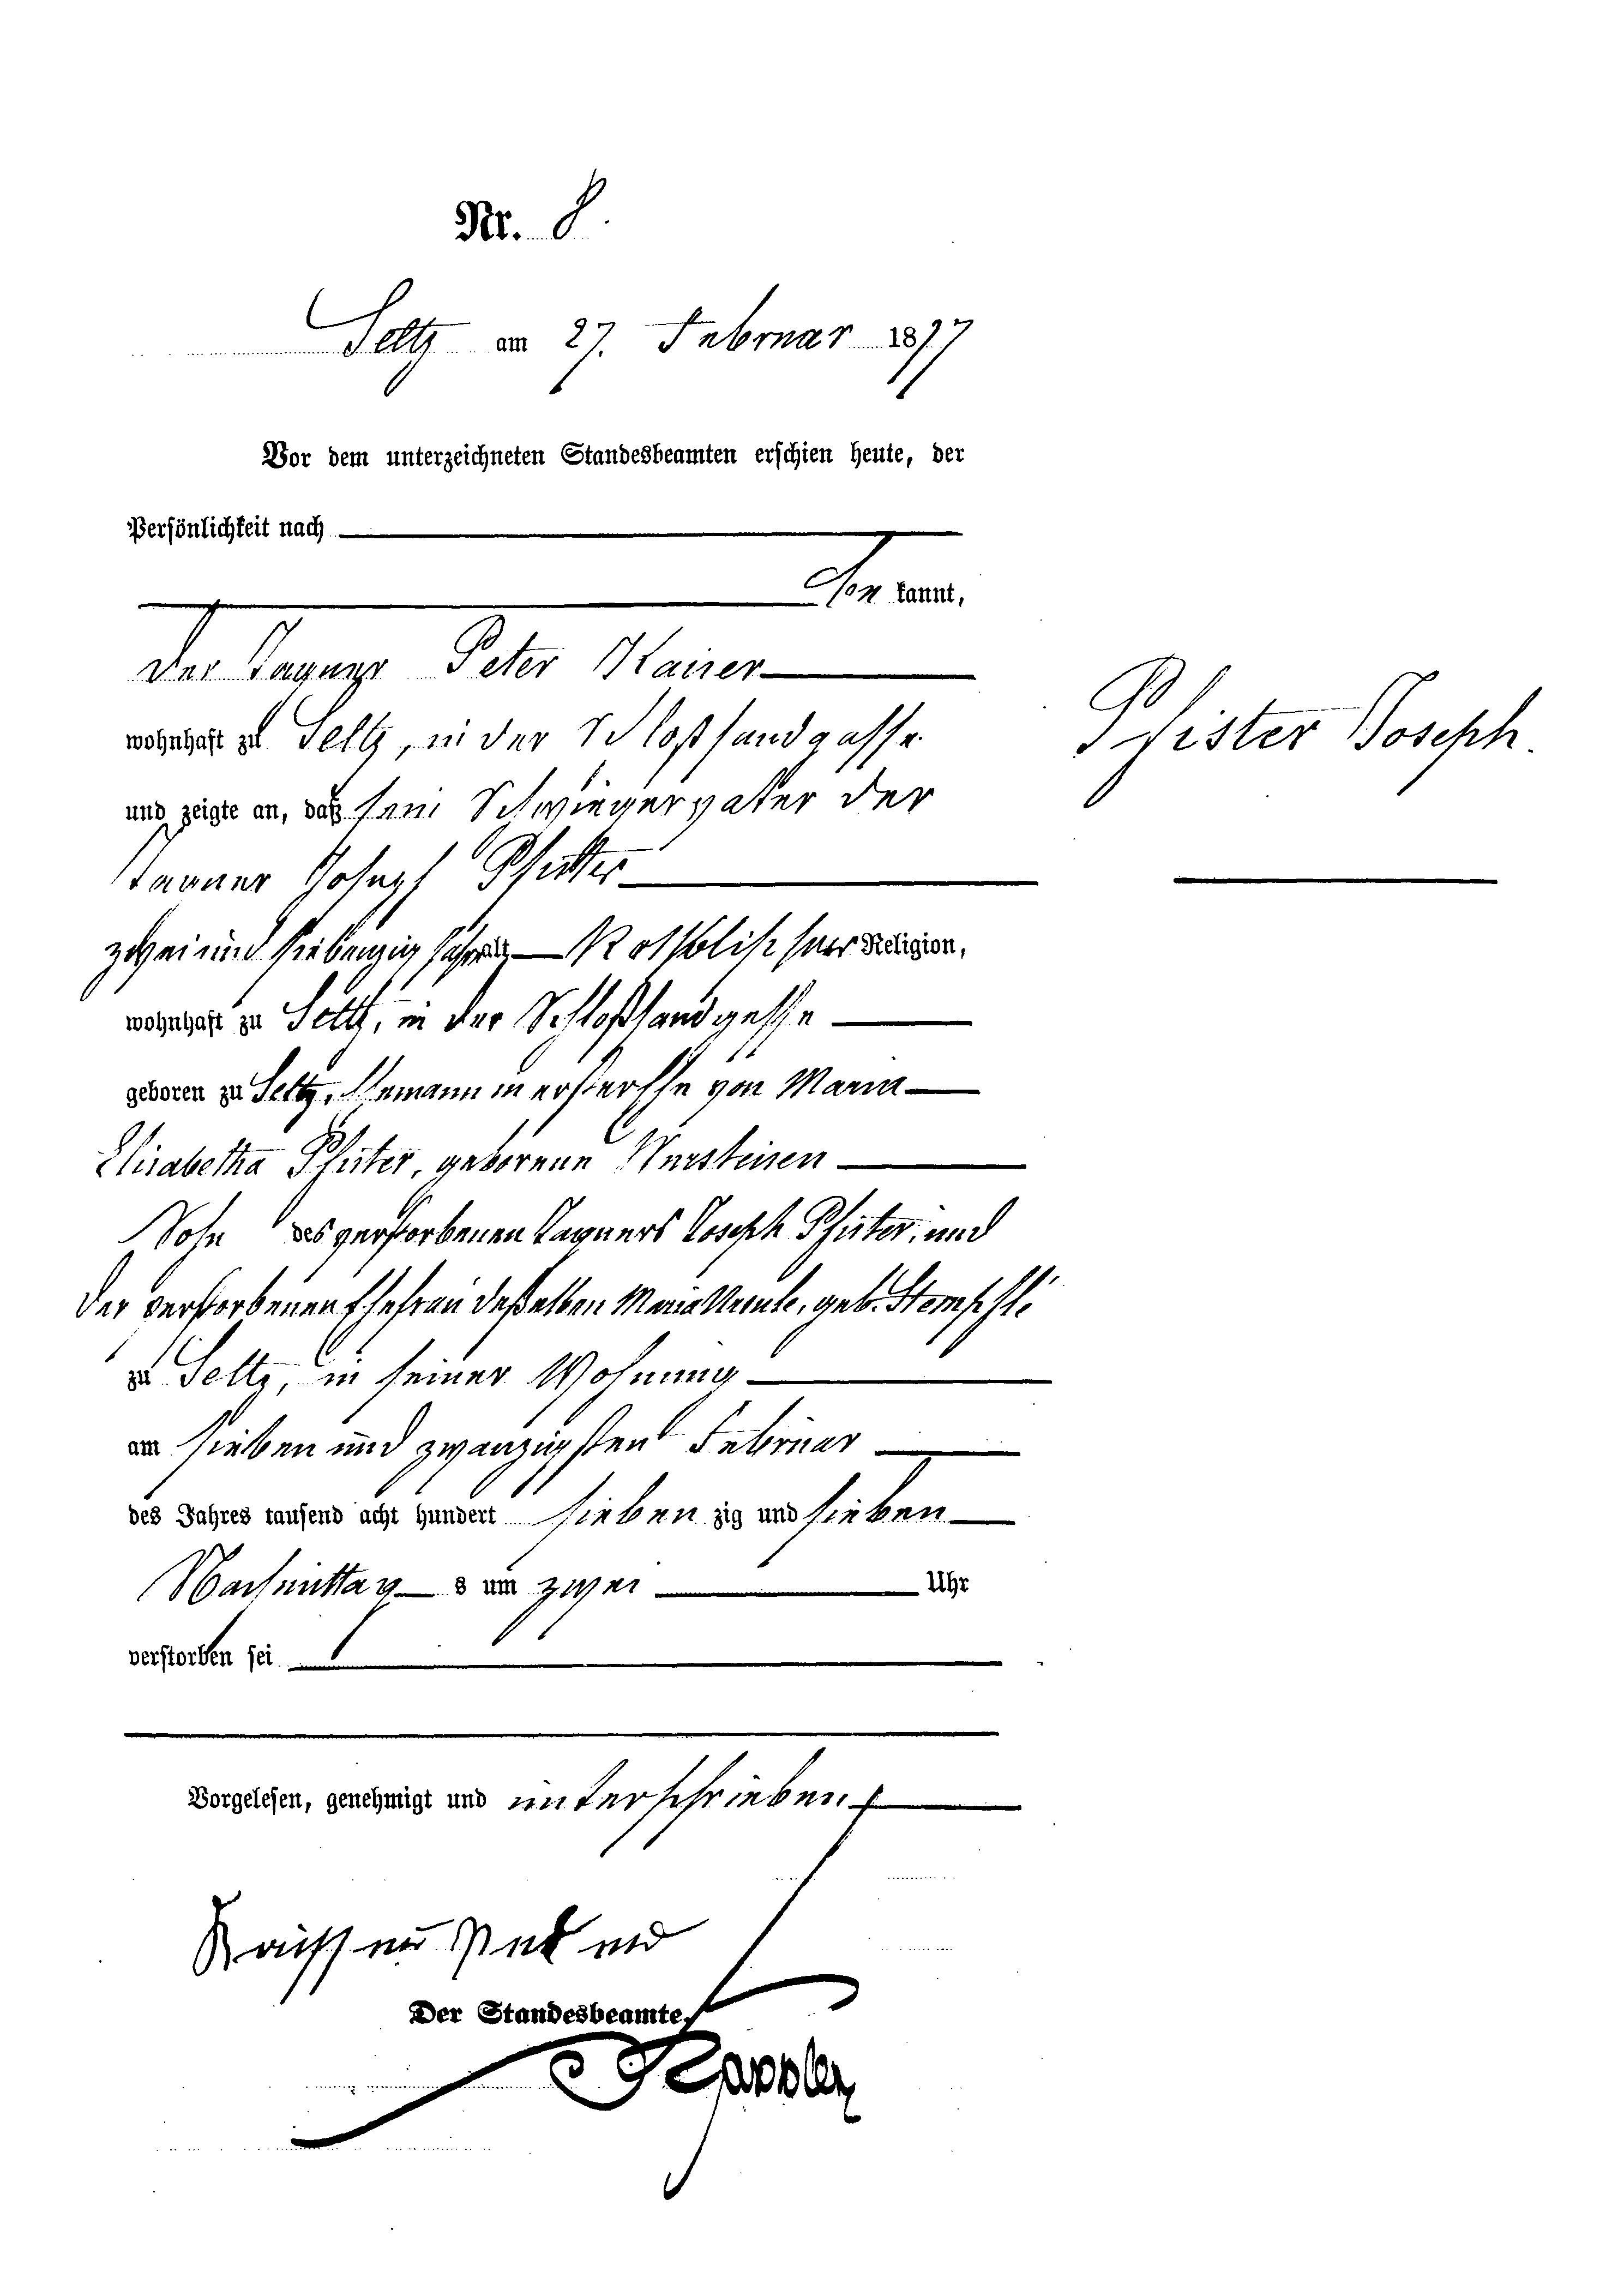 Nr. 8.
Seltz am 27. Februar 1877
Vor dem unterzeichneten Standesbeamten erschien heute, der
Persönlichkeit nach
kannt,
der Tagner Peter Kaiser
wohnhaft zu Seltz, in der Schloßsandgasse
und zeigte an, daß sein Schwiegervater der
Tagner Joseph Pfister
zwei und siebenzig Jahre alt, Katholischer Religion,
wohnhaft zu Seltz, in der Schloßsandgasse
geboren zu Seltz, Ehemann in erster Ehe von Maria
Elisabetha Pfister, geborene
Sohn des verstorbenen Tagners Joseph Pfister, und
der verstorbenen Ehefrau deßelben Maria geb.
zu Seltz, in seiner Wohnung
am sieben und zwanzigsten Februar
des Jahres tausend acht hundert sieben zig und sieben
Nachmittag s um zwei Uhr
verstorben sei
Vorgelesen, genehmigt und unterschrieben
Der Standesbeamte,
Pfister Joseph.